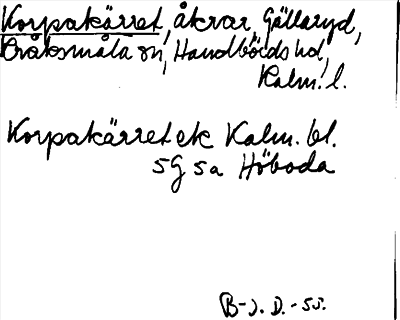 Korpakärret, åkrar, Gällaryd,
Bråksmåla sn, Handbörds hd,
Kalm. l.
Korpakärret ek Kalm. bl.
5G 5a Höboda
B-J. D. -55.